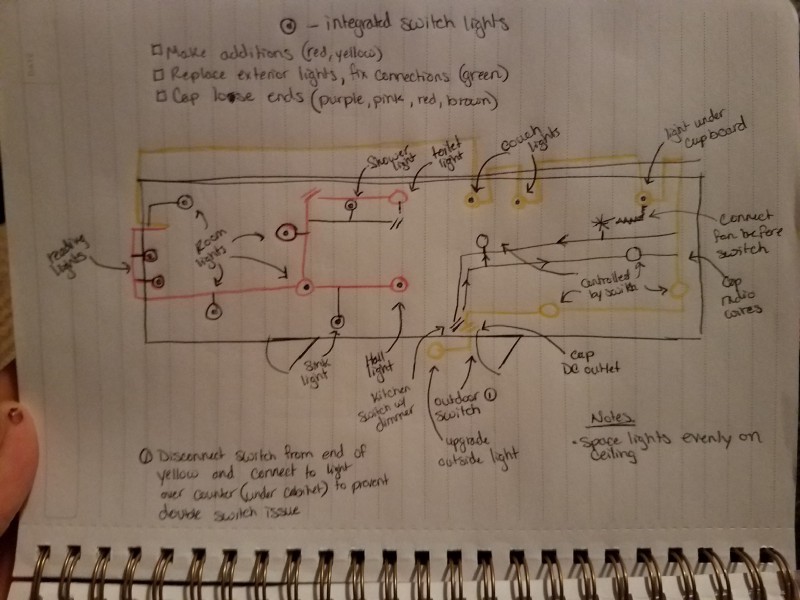 - integrated switch lights
Make additions (red, yellow)
Replace exterior lights, fix connections (green)
Cap loose ends (purple, pink, red, brown)
Shower
light
toilet
light
couch
lights
light under
cupboard
reading
lights
Room
lights
Connect
fan before
switch
Controlled
by switch
Cap
radio
wires
Sink
light
Hall
light
Kitchen
switch w/
dimmer
outdoor ①
switch
cap
DC outlet
upgrade
outside light
Notes
• Space lights evenly on
ceiling
① Disconnect switch from end of
yellow and connect to light
over counter (under cabinet) to prevent
double switch issue
DATE